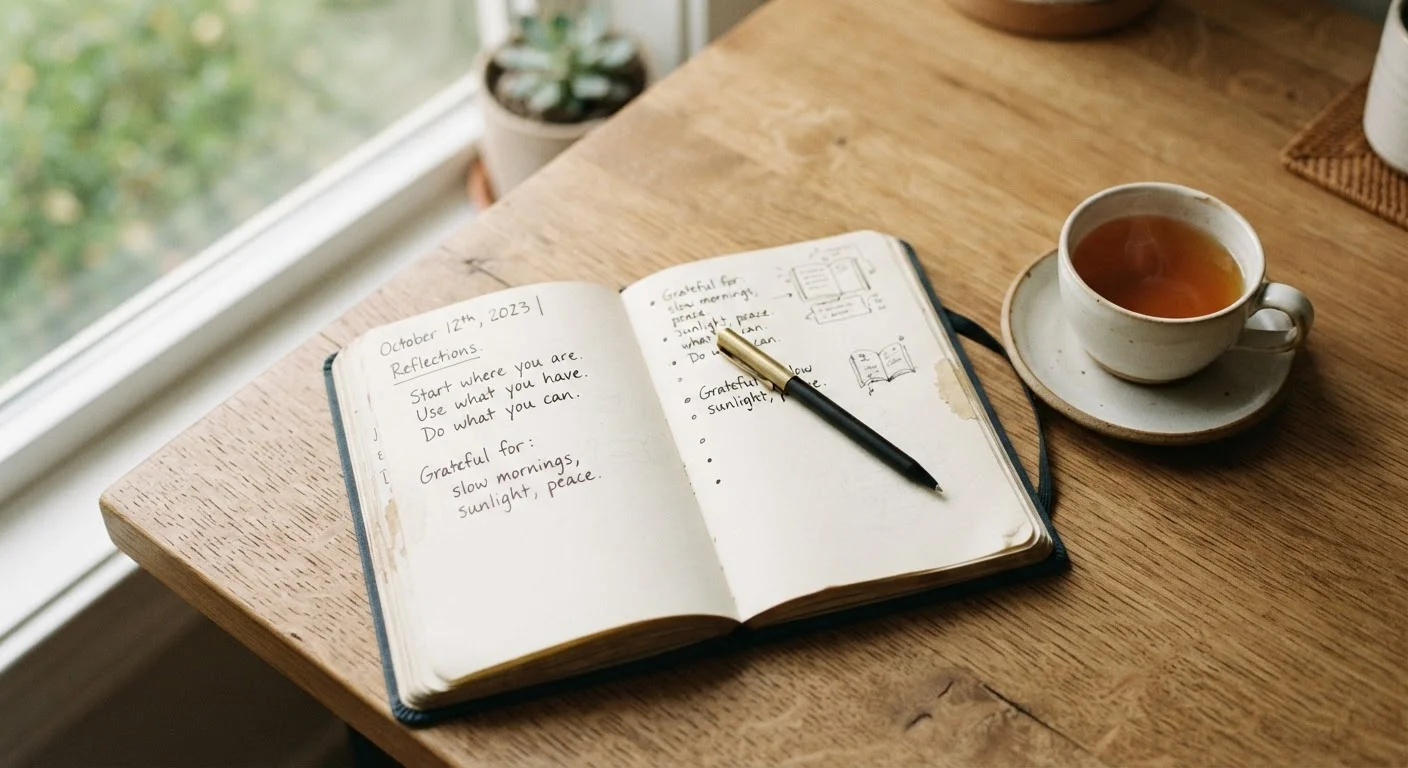 October 12th, 2023 |
Reflections.
Start where you are.
Use what you have.
Do what you can.
Grateful for:
slow mornings,
sunlight, peace.
Grateful for:
slow mornings,
peace.
sunlight, peace.
what can.
Do can.
Grateful low
sunlight, p ce.